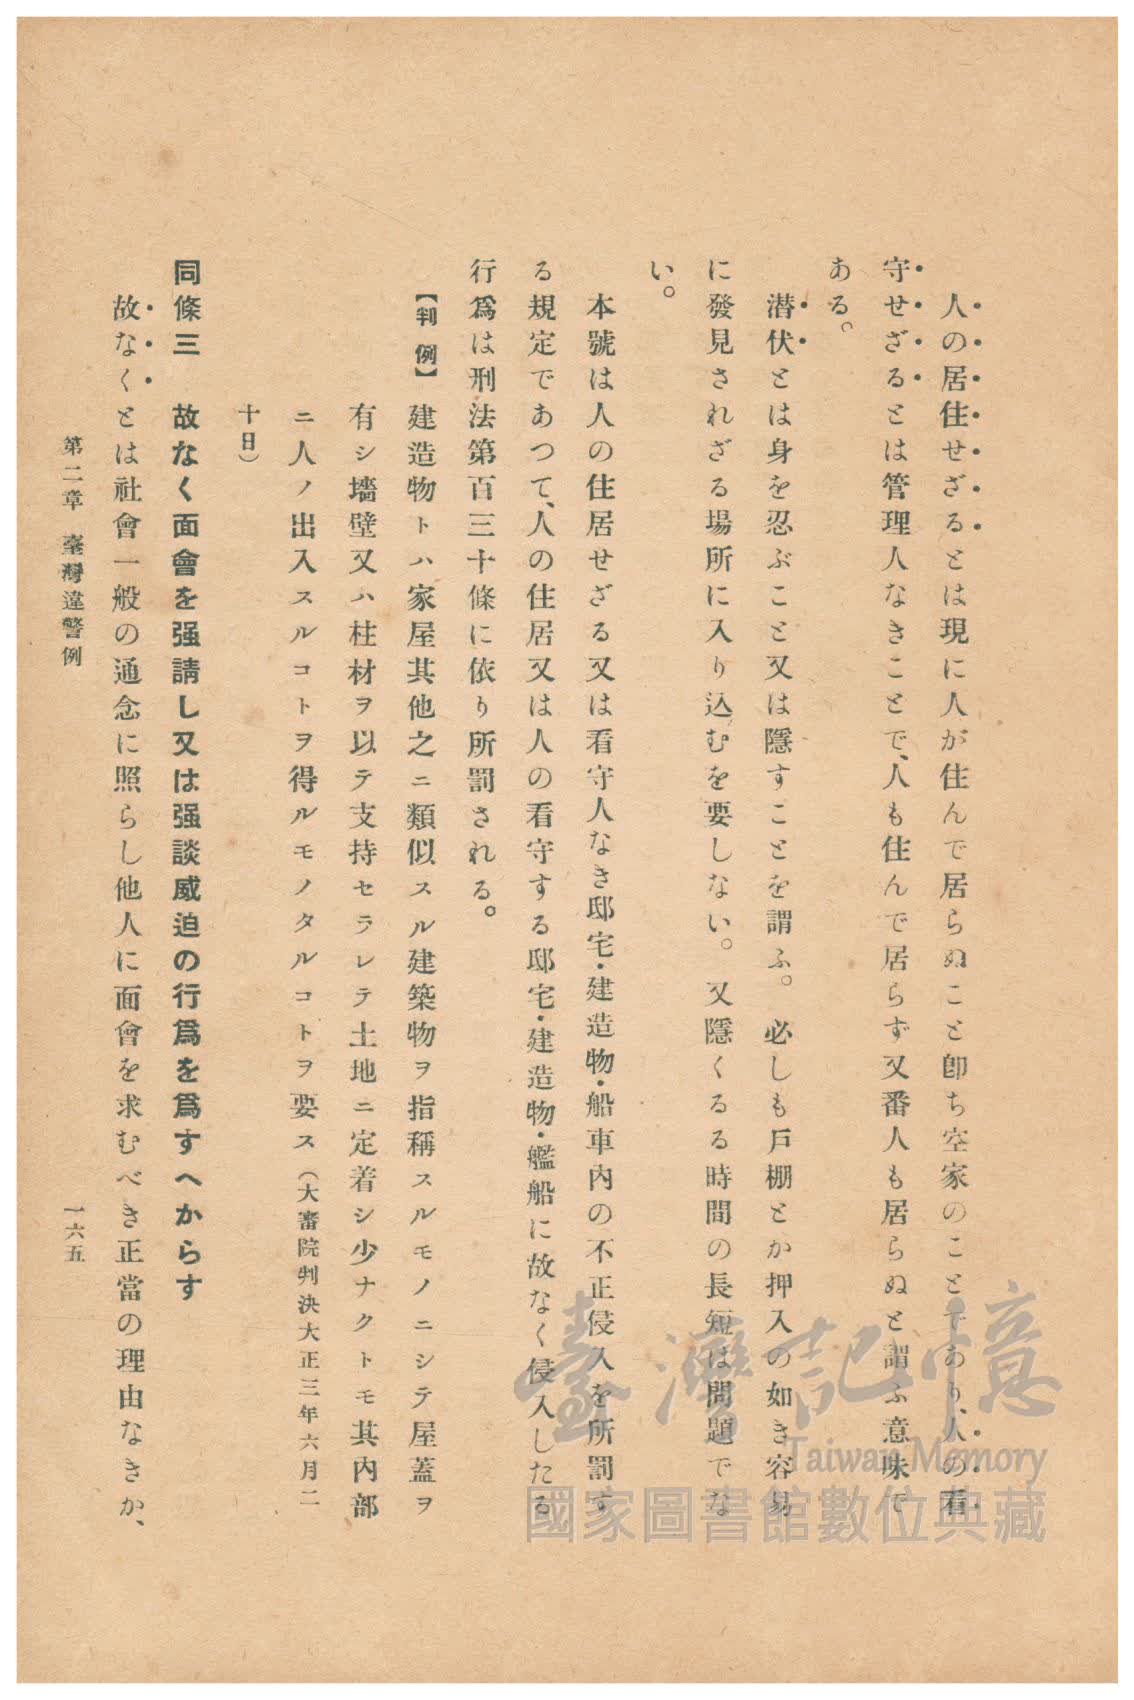 人の居住せざるとは現に人が住んで居らぬこと卽ち空家のことであり、人の看
守せざるとは管理人なきことで、人も住んで居らず又番人も居らぬと謂ふ意味で
ある。
潜伏とは身を忍ぶこと又は隱すことを謂ふ。必しも戸棚とか押入の如き容易
に發見されざる場所に入り込むを要しない。又隱くるる時間の長短は問題でな
い。
本號は人の住居せざる又は看守人なき邸宅・建造物・船車内の不正侵入を所罰す
る規定であつて、人の住居又は人の看守する邸宅・建造物・艦船に故なく侵入したる
行爲は刑法第百三十條に依り所罰される。
【判例】建造物トハ家屋其他之ニ類似スル建築物ヲ指稱スルモノニシテ屋蓋ヲ
有シ墻壁又ハ柱材ヲ以テ支持セラレテ土地ニ定着シ少ナクトモ其内部
ニ人ノ出入スルコトヲ得ルモノタルコトヲ要ス（大審院判決大正三年六月二
十日）
同條三　故なく面會を强請し又は强談威迫の行爲を爲すへからす
故なくとは社會一般の通念に照らし他人に面會を求むべき正當の理由なきか、
第二章　臺灣違警例
一六五
臺灣記憶
Taiwan Memory
國家圖書館數位典藏